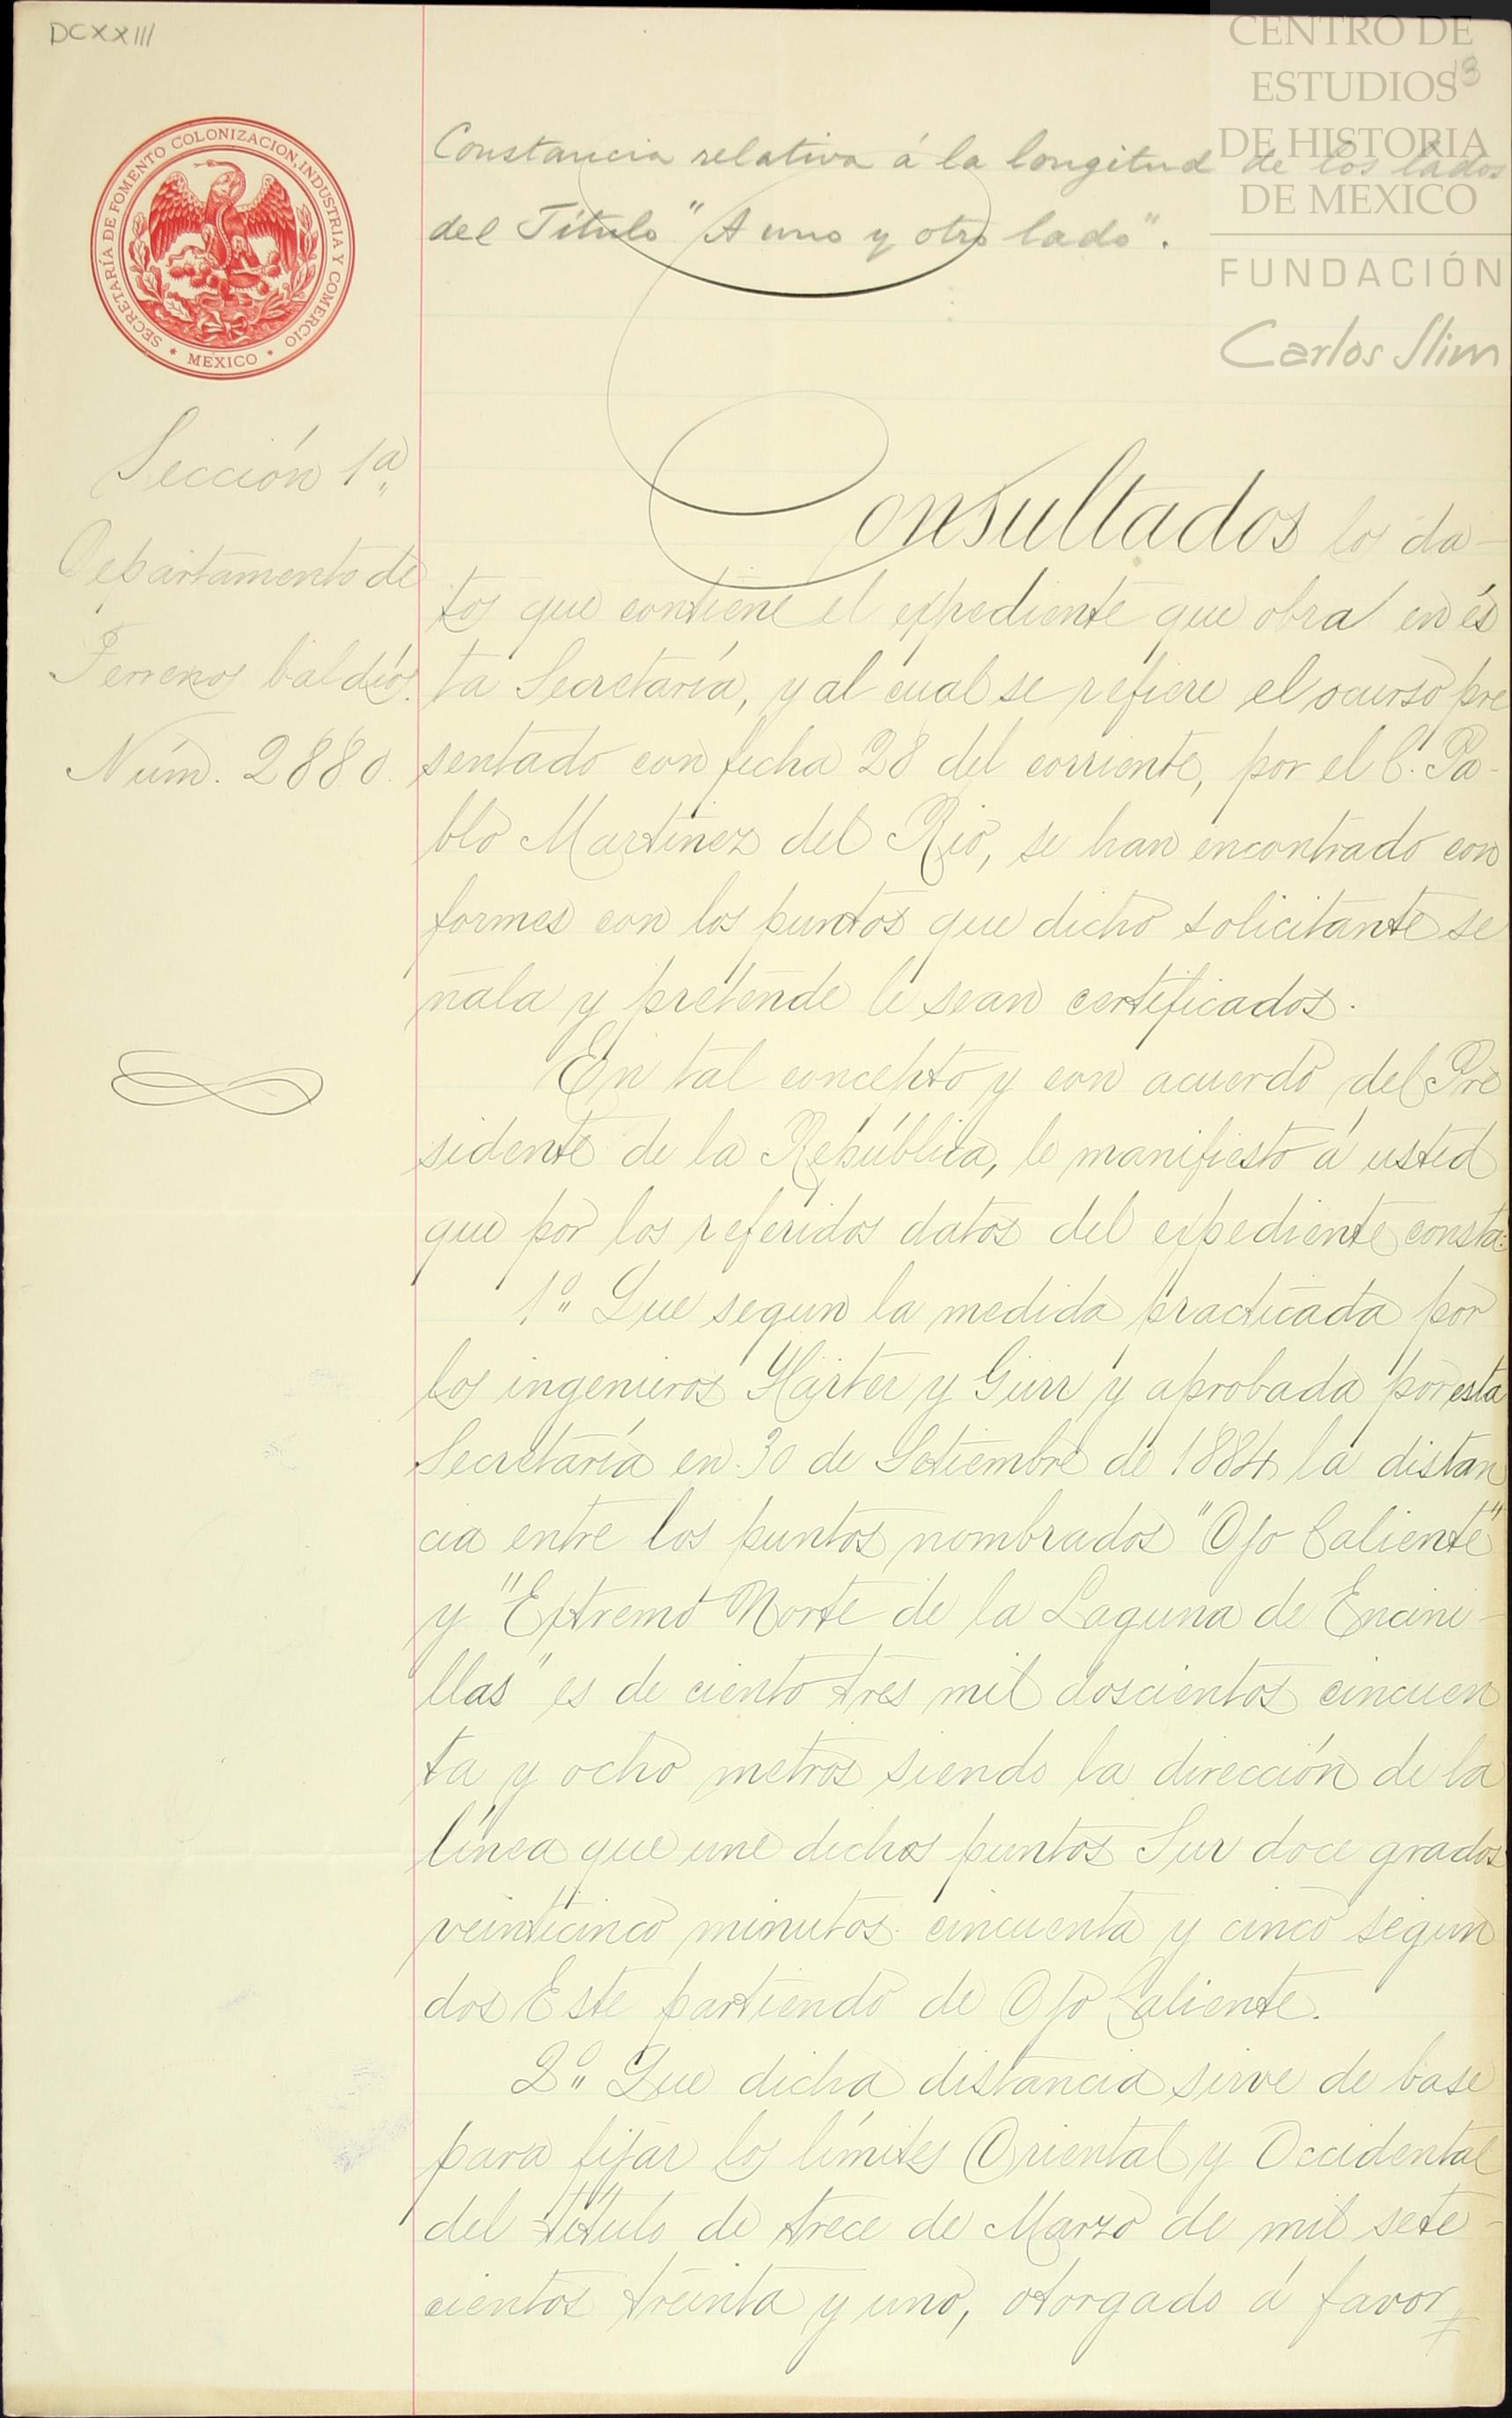 DCXXIII
CENTRO DE
ESTUDIOS
DE HISTORIA
DE MEXICO
FUNDACIÓN
Carlos Slim
13
SECRETARÍA DE FOMENTO COLONIZACION, INDUSTRIA Y COMERCIO
* MÉXICO *
Constancia relativa á la longitud de los lados
del Título "A uno y otro lado".
Sección 1ª
Departamento de
Terrenos baldíos.
Núm. 2880.
Consultados los da-
tos que contiene el expediente que obra en és
ta Secretaría, y al cual se refiere el ocurso pre
sentado con fecha 28 del corriente, por el C. Pa-
blo Martinez del Rio, se han encontrado con
formes con los puntos que dicho solicitante se
ñala y pretende le sean certificados.
En tal concepto y con acuerdo del Pre
sidente de la República, le manifiesto á usted
que por los referidos datos del expediente consta:
1º Que segun la medida practicada por
los ingenieros Härter y Gurr y aprobada por esta
Secretaría en 30 de Setiembre de 1884, la distan
cia entre los puntos nombrados "Ojo Caliente"
y "Extremo Norte de la Laguna de Encini-
llas" es de ciento tres mil doscientos cincuen
ta y ocho metros siendo la dirección de la
línea que une dichos puntos Sur doce grados
veinticinco minutos cincuenta y cinco segun
dos Este partiendo de Ojo Caliente.
2º Que dicha distancia sirve de base
para fijar los límites Oriental y Occidental
del título de trece de Marzo de mil sete-
cientos treinta y uno, otorgado á favor